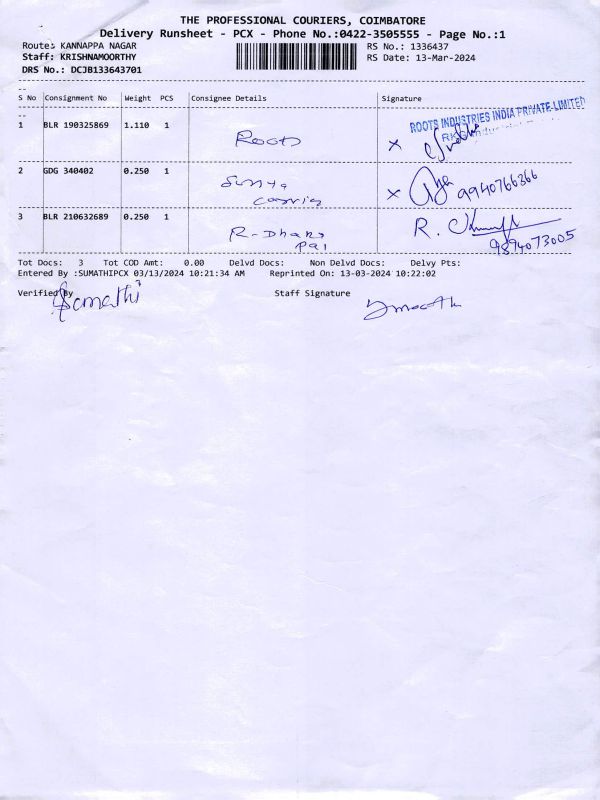 THE PROFESSIONAL COURIERS, COIMBATORE
Delivery Runsheet - PCX - Phone No.:0422-3505555 - Page No.:1
Route: KANNAPPA NAGAR RS No.: 1336437
Staff: KRISHNAMOORTHY RS Date: 13-Mar-2024
DRS No.: DCJB133643701
S No Consignment No Weight PCS Consignee Details Signature
ROOTS INDUSTRIES INDIA PRIVATE LIMITED
1 BLR 190325869 1.110 1 Roots X
2 GDG 340402 0.250 1 X 9940766366
3 BLR 210632689 0.250 1 R-Dhana R.
Pal 9894073005
Tot Docs: 3 Tot COD Amt: 0.00 Delvd Docs: Non Delvd Docs: Delvy Pts:
Entered By :SUMATHIPCX 03/13/2024 10:21:34 AM Reprinted On: 13-03-2024 10:22:02
Verified By Staff Signature